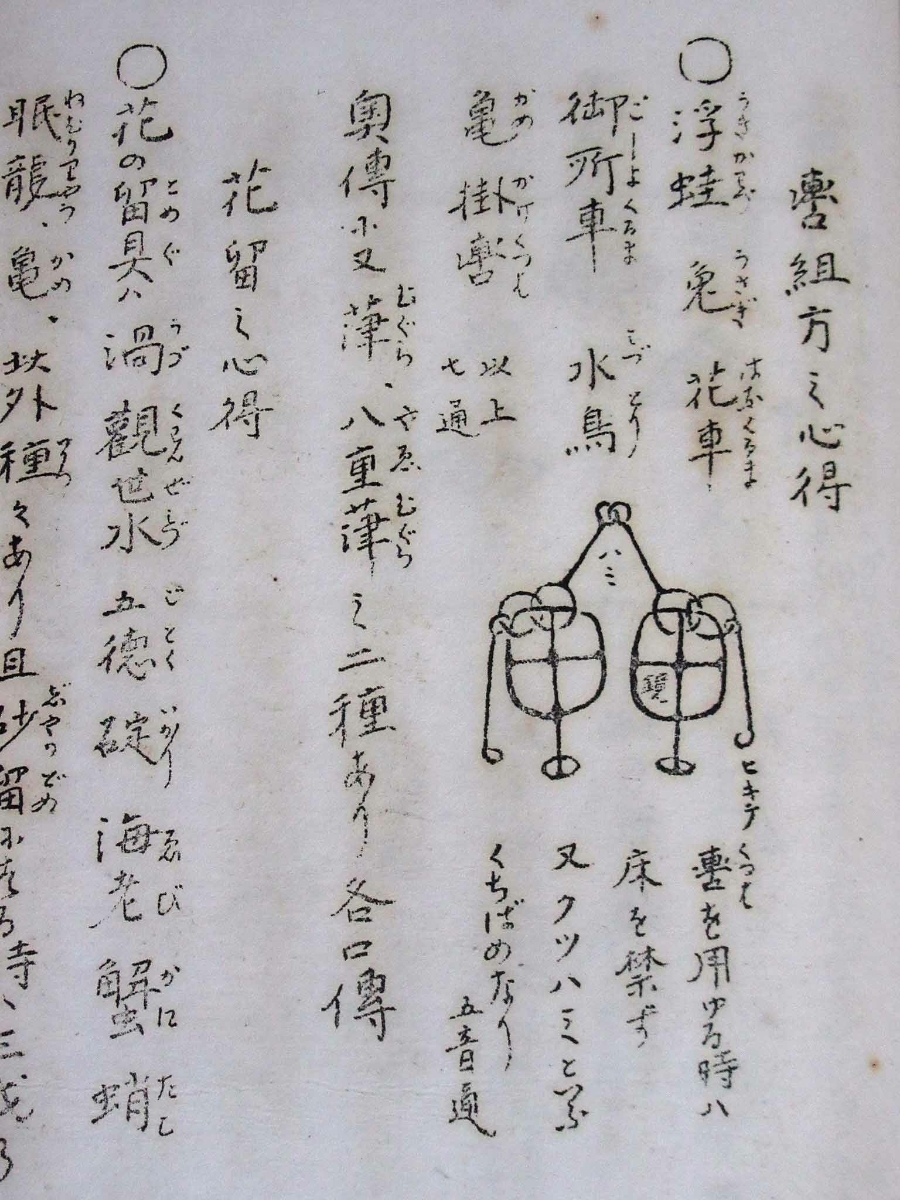 轡組方之心得
○浮蛙 兎 花車
うきかはづ うさぎ はなくるま
御所車 水鳥
ごしよくるま みづとり
亀掛轡 以上七通
かめかけくつわ
ハミ
鏡
ヒキテ
轡を用ゆる時ハ
床を禁ず
又クツハミと云
くちばめなり 五音通
奥傳に又葎、八重葎之二種あり各口傳
むぐら やゑむぐら
花留之心得
○花の留具ハ渦 觀世水 五徳 碇 海老 蟹 蛸
とめぐ うづ くわんせみづ ごとく いかり ゑび かに たこ
眠龍、亀、此外種々あり且砂留
ねむりりやう かめ